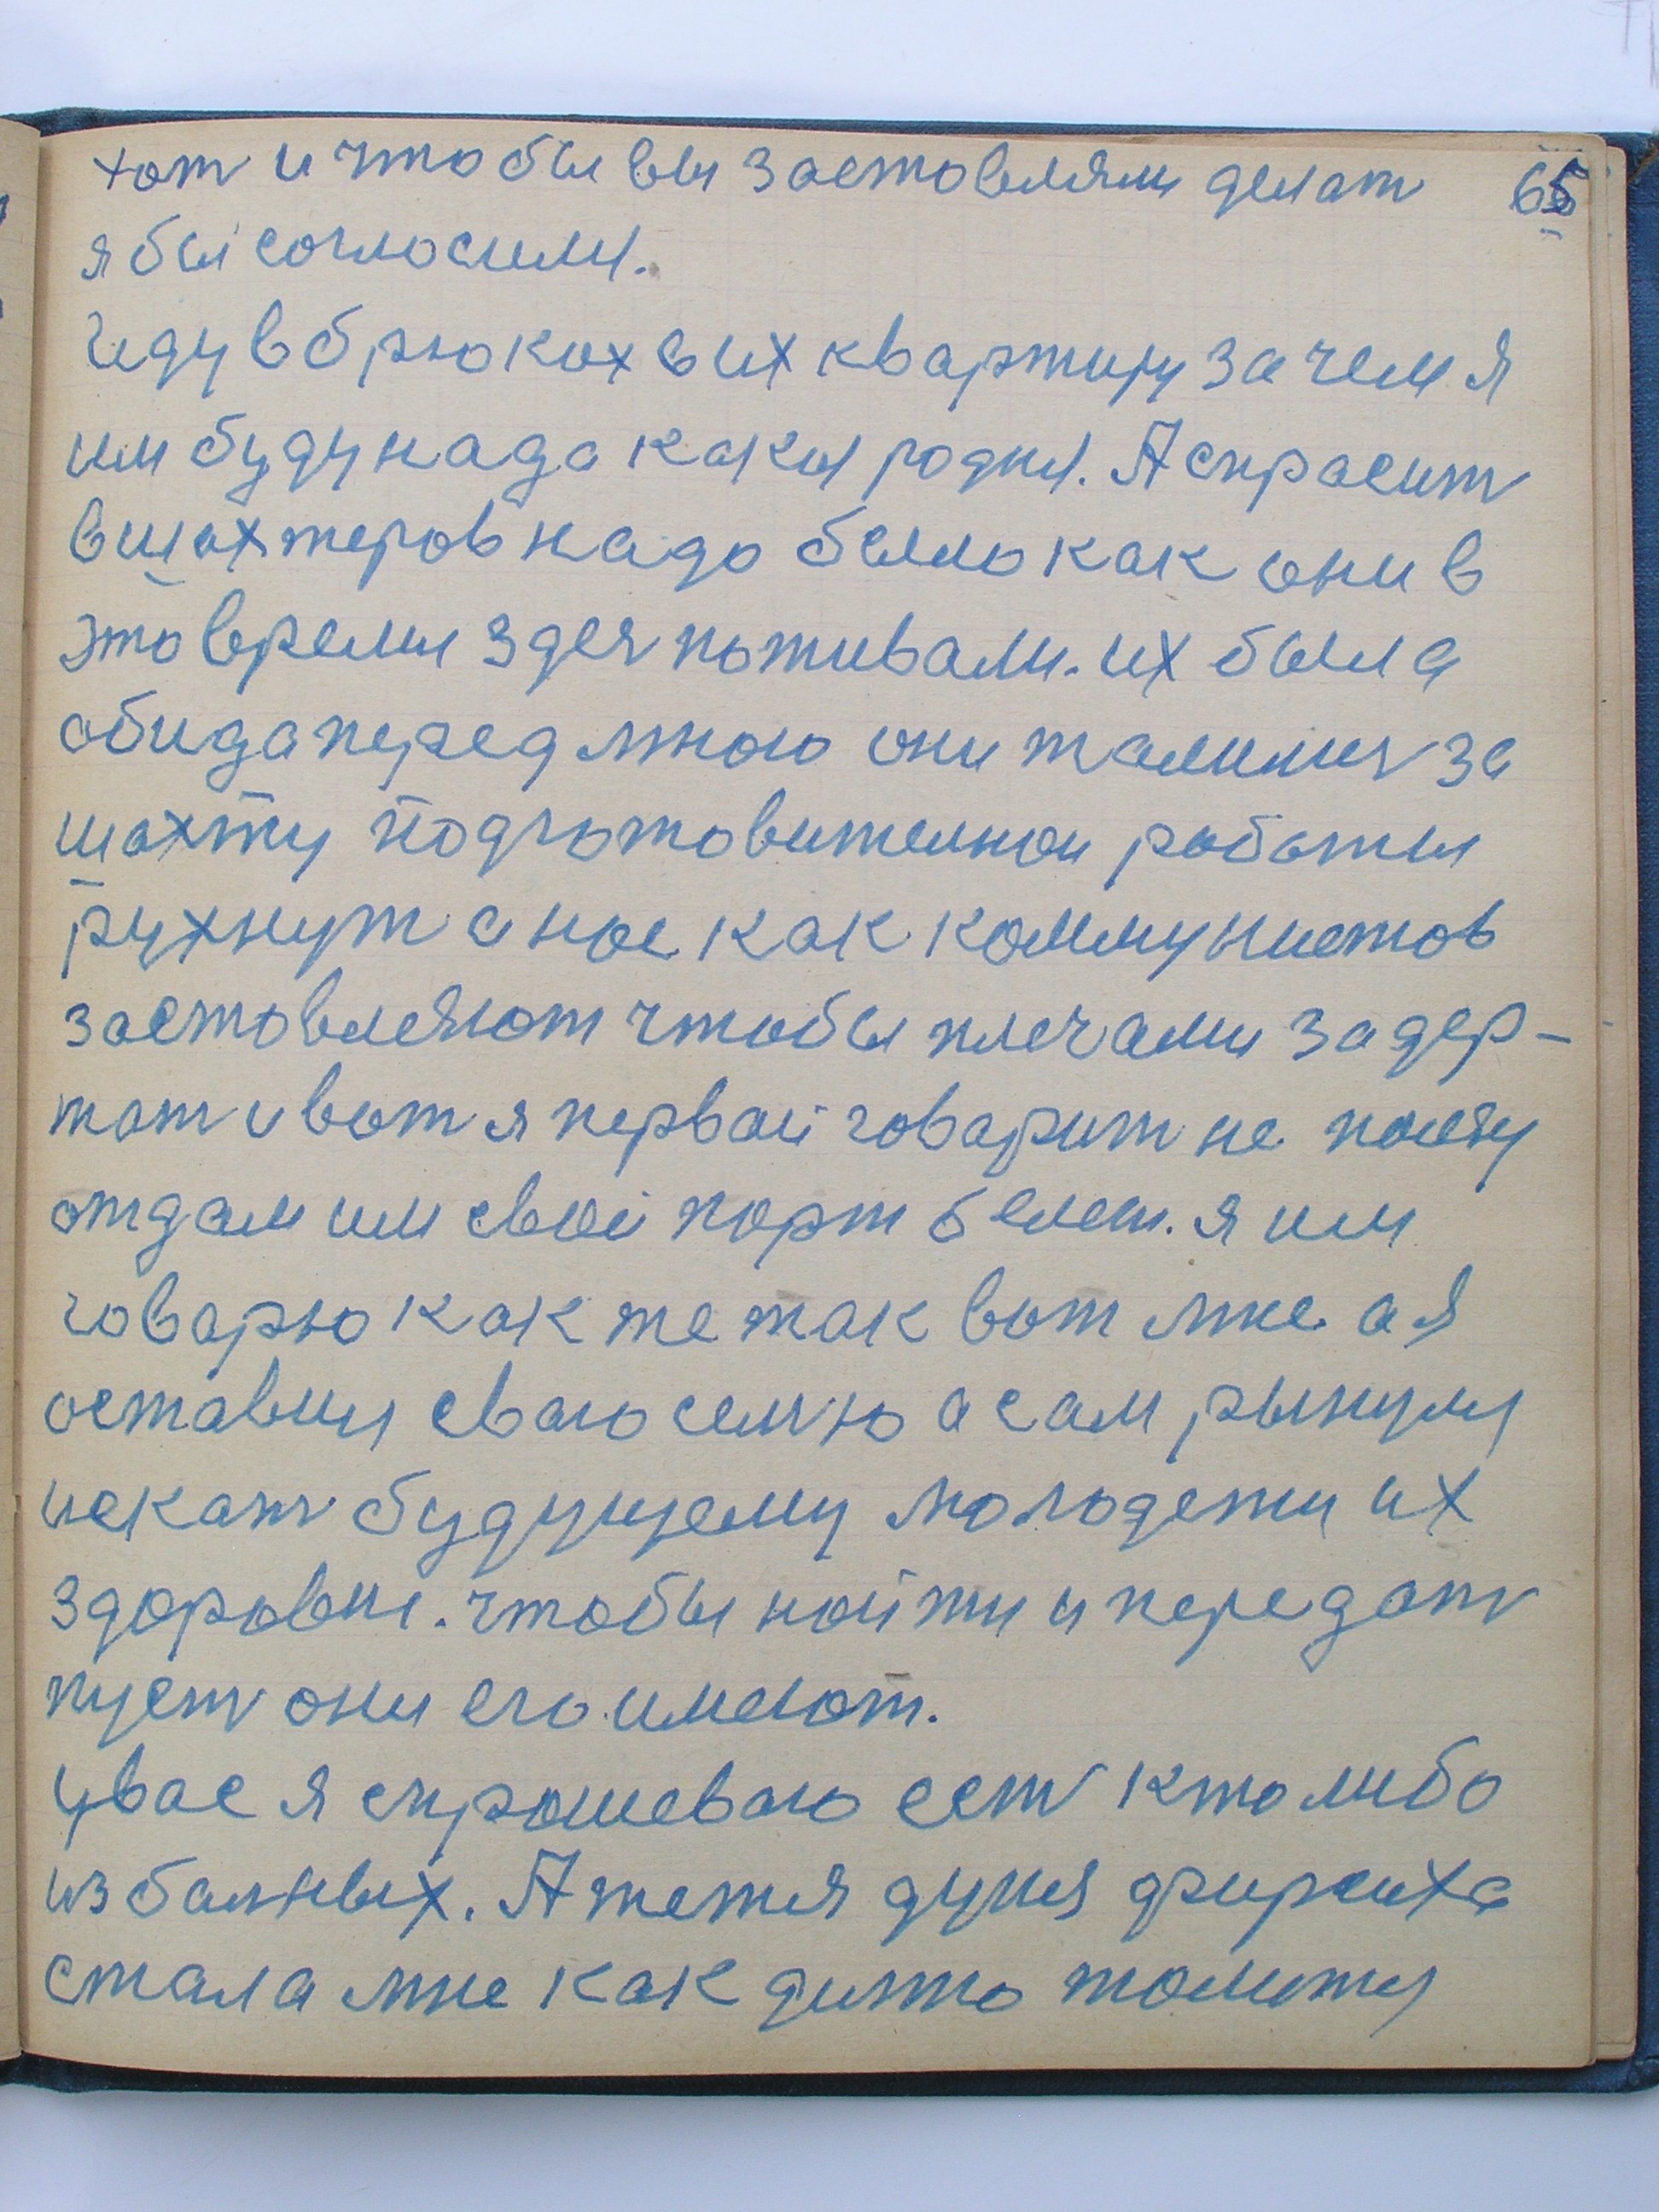 хот и что бы вы заставляли делат 65
я бы согласился.
Иду в брюках в их квартиру зачем я
им буду нада какия родня. А спрасит
в шахтеров надо было как они в
это время здесь поживали. их была
обида передмною они жались за
шахту подготовителнои работы
рухнут а нас как коммунистов
заставлеяют чтобы плечами задер-
жат и вот я первай говарит не полезу
отдам им свой парт белет. я им
говарю как же так вот мне а я
оставил сваю семю а сам рынулся
искат будующему молодежи их
здоровие. чтобы найти и передат
пуст они его имеют.
у вас я спрашеваю ест кто либо
из балных. А тетя дуня
стала мне как дитю